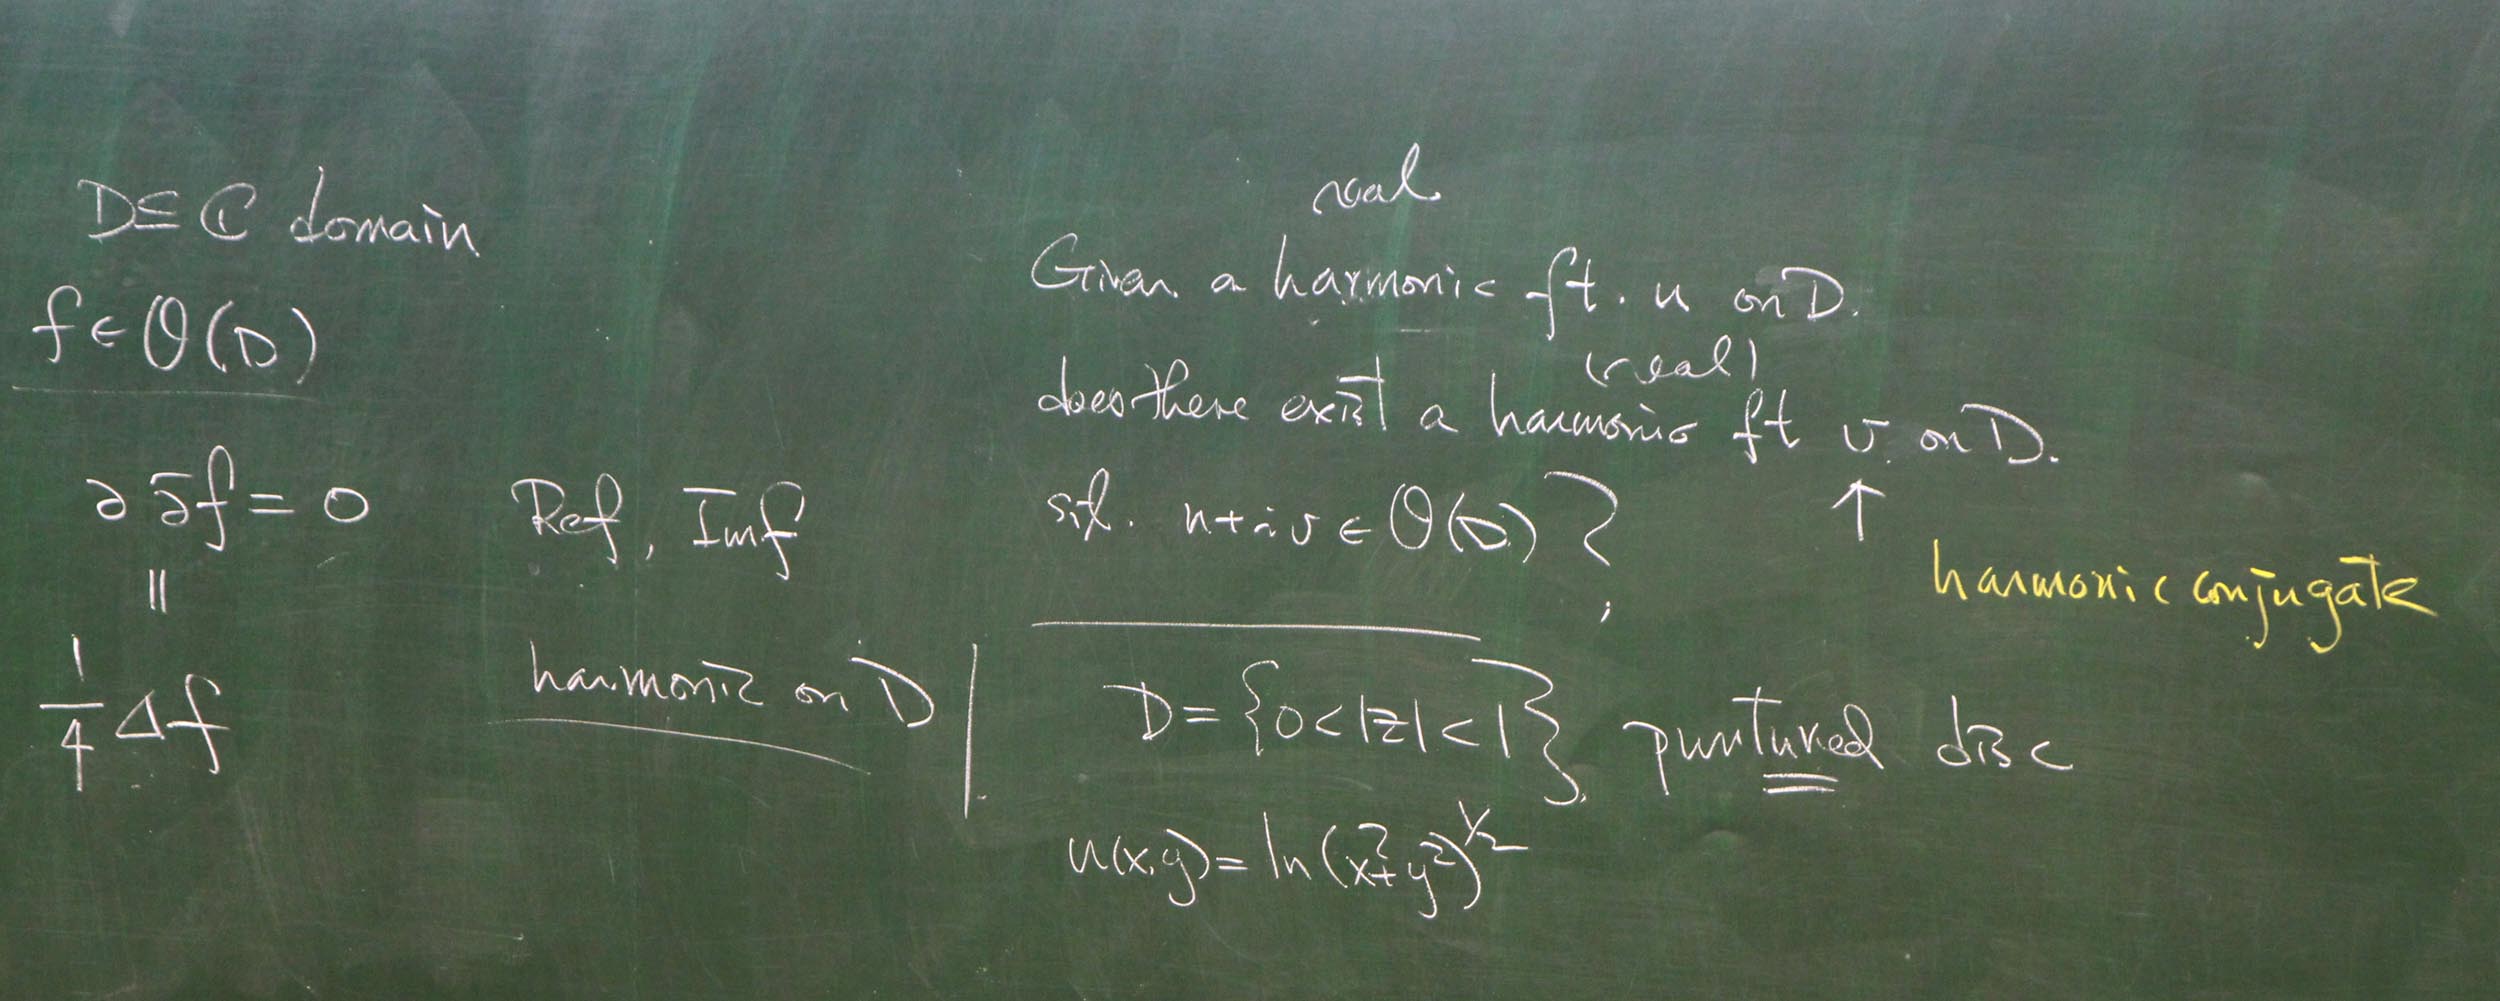 D ⊆ ℂ domain
f ∈ O(D)
∂∂̄f = 0
॥
1/4 Δf
Ref, Imf
harmonic on D
real
Given a harmonic ft. u on D.
(real)
does there exist a harmonic ft v on D.
s.t. u+iv ∈ O(D) ?
↑
harmonic conjugate
D = {0<|z|<1}, puntured disc
u(x,y) = ln(x²+y²)^1/2